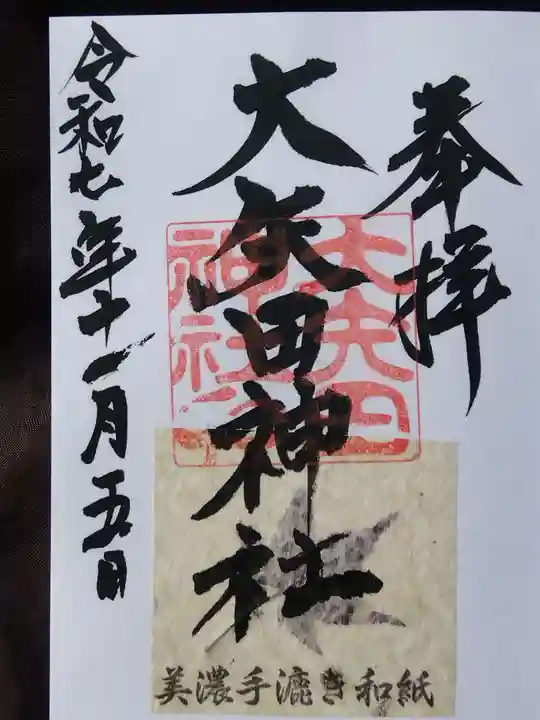 奉拝
大矢田神社
大矢田
神社
令和七年十一月五日
美濃手漉き和紙